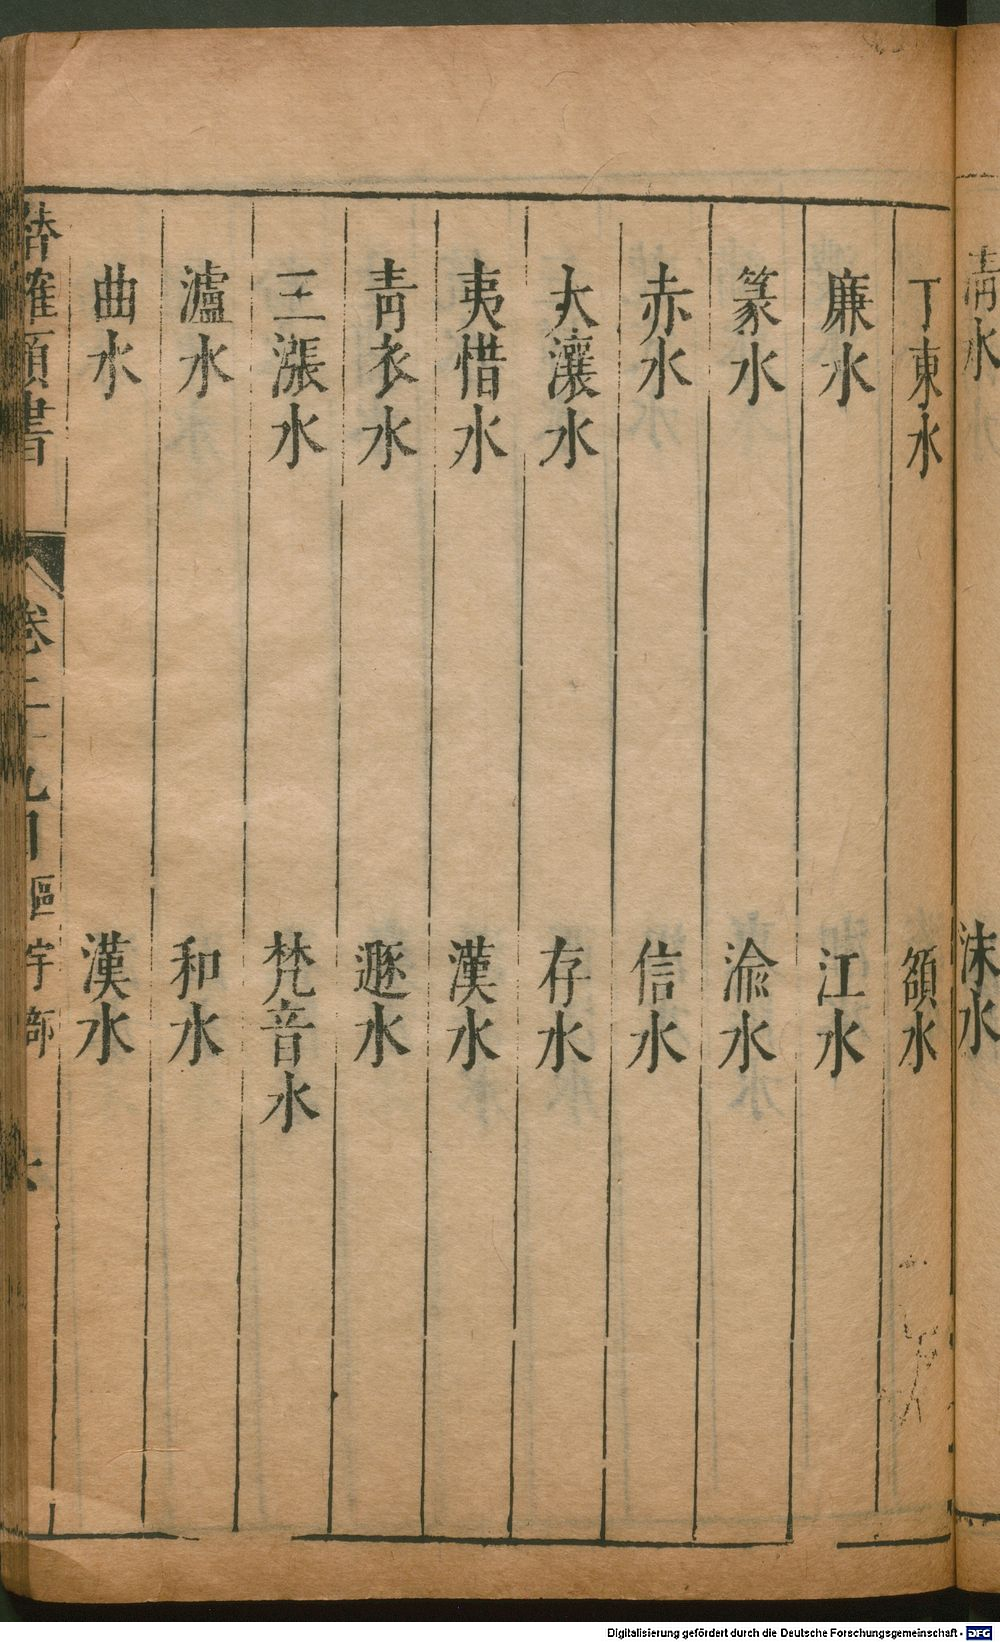 清水
沫水
丁東水
額水
廉水
江水
篆水
渝水
赤水
信水
大瀼水
存水
夷惜水
漢水
青衣水
遯水
三漲水
梵音水
瀘水
和水
曲水
漢水
潛確類書
卷二十九目
區宇部
六
Digitalisierung gefördert durch die Deutsche Forschungsgemeinschaft - DFG